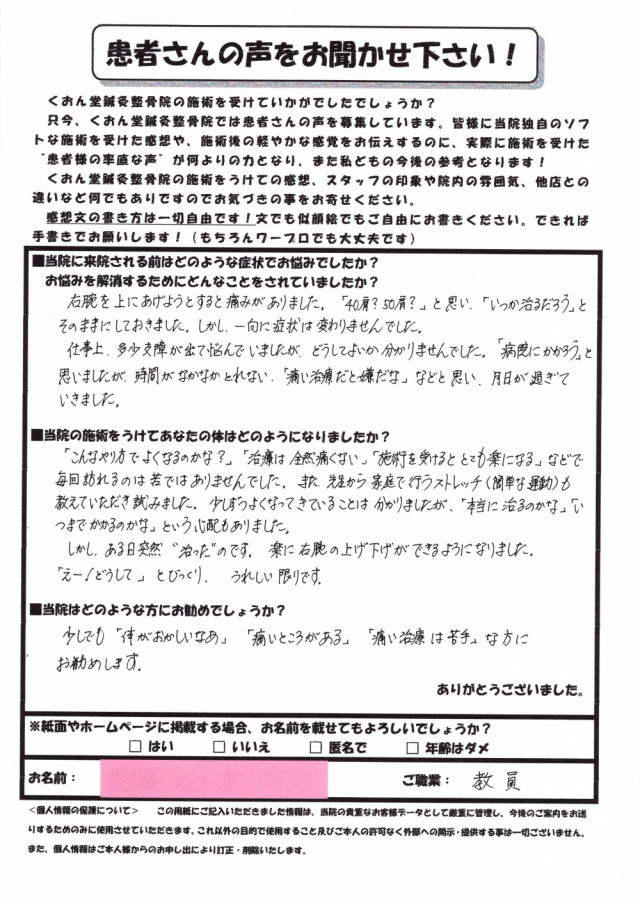 患者さんの声をお聞かせ下さい！
くおん堂鍼灸整骨院の施術を受けていかがでしたでしょうか？
只今、くおん堂鍼灸整骨院では患者さんの声を募集しています。皆様に当院独自のソフ
トな施術を受けた感想や、施術後の軽やかな感覚をお伝えするのに、実際に施術を受けた
"患者様の率直な声"が何よりの力となり、また私どもの今後の参考となります！
くおん堂鍼灸整骨院の施術をうけての感想、スタッフの印象や院内の雰囲気、他店との
違いなど何でもありですのでお気づきの事をお寄せください。
感想文の書き方は一切自由です！文でも似顔絵でもご自由にお書きください。できれば
手書きでお願いします！（もちろんワープロでも大丈夫です）
■当院に来院される前はどのような症状でお悩みでしたか？
お悩みを解消するためにどんなことをされていましたか？
右腕を上にあげようとすると痛みがありました。「40肩？50肩？」と思い、「いつか治るだろう」と
そのままにしておきました。しかし、一向に症状は変わりませんでした。
仕事上、多少支障が出て悩んでいましたが、どうしてよいか分かりませんでした。「病院にかかろう」と
思いましたが、時間がなかなかとれない、「痛い治療だと嫌だな」などと思い、月日が過ぎて
いきました。
■当院の施術をうけてあなたの体はどのようになりましたか？
「こんなやり方でよくなるのかな？」「治療は全然痛くない」「施術を受けるととても楽になる」などで
毎回訪れるのは苦ではありませんでした。また、先生から家庭で行うストレッチ（簡単な運動）も
教えていただき試みました。少しずつよくなってきていることは分かりましたが、「本当に治るのかな」「い
つまでかかるのかな」という心配もありました。
しかし、ある日突然"治った"のです。楽に右腕の上げ下げができるようになりました。
「えー！どうして」とびっくり、うれしい限りです。
■当院はどのような方にお勧めでしょうか？
少しでも「体がおかしいなあ」「痛いところがある」「痛い治療は苦手」な方に
お勧めします。
ありがとうございました。
※紙面やホームページに掲載する場合、お名前を載せてもよろしいでしょうか？
□ はい □ いいえ □ 匿名で □ 年齢はダメ
お名前： ご職業： 教員
＜個人情報の保護について＞ この用紙にご記入いただきました情報は、当院の貴重なお客様データとして厳重に管理し、今後のご案内をお送
りするためのみに使用させていただきます。これ以外の目的で使用すること及びご本人の許可なく外部への開示・提供する事は一切ございません。
また、個人情報はご本人様からのお申し出により訂正・削除いたします。